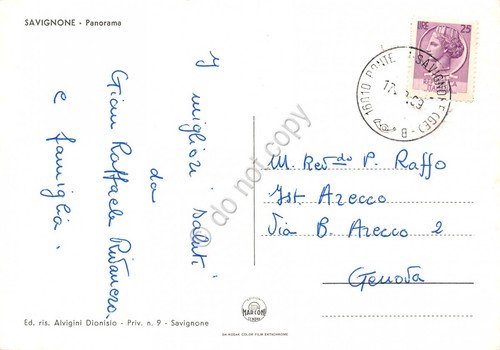 SAVIGNONE - Panorama
I migliori saluti
da
Gian Raffaele
e famiglia.
LIRE 25
16010 PONTE SAVIGNONE (GE)
M. Rev.do P. Raffo
Ist. Arecco
Via B. Arecco 2
Genova
do not copy
MARCONI
GENOVA
Ed. ris. Alvigini Dionisio - Priv. n. 9 - Savignone
ON KODAK COLOR FILM EKTACHROME